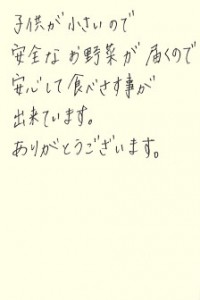 子供が小さいので
安全なお野菜が届くので
安心して食べさす事が
出来ています。
ありがとうございます。